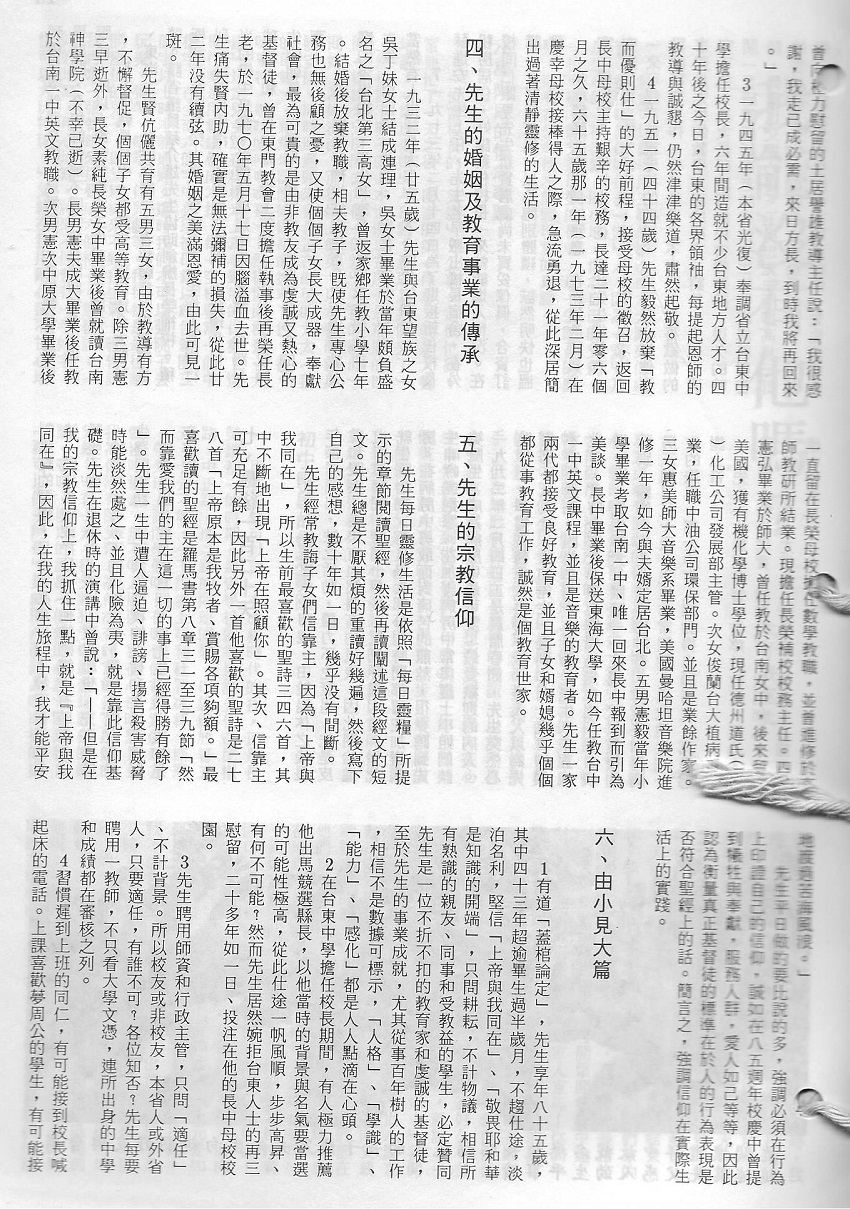 首向極力慰留的土居譽雄教導主任說：「我很感
謝，我走已成必需，來日方長，到時我將再回來
。」
3一九四五年（本省光復）奉調省立台東中
學擔任校長，六年間造就不少台東地方人才。四
十年後之今日，台東的各界領袖，每提起恩師的
教導與誠懇，仍然津津樂道，肅然起敬。
4一九五一（四十四歲）先生毅然放棄「教
而優則仕」的大好前程，接受母校的徵召，返回
長中母校主持艱辛的校務，長達二十一年零六個
月之久，六十五歲那一年（一九七三年二月）在
慶幸母校接棒得人之際，急流勇退，從此深居簡
出過著清靜靈修的生活。
四、先生的婚姻及教育事業的傳承
一九三二年（廿五歲）先生與台東望族之女
吳丁妹女士結成連理，吳女士畢業於當年頗負盛
名之「台北第三高女」，曾返家鄉任教小學七年
。結婚後放棄教職，相夫教子，既使先生專心公
務也無後顧之憂，又使個個子女長大成器，奉獻
社會，最為可貴的是由非教友成為虔誠又熱心的
基督徒，曾在東門教會二度擔任執事後再榮任長
老，於一九七〇年五月十七日因腦溢血去世。先
生痛失賢內助，確實是無法彌補的損失，從此廿
二年没有續弦。其婚姻之美滿恩愛，由此可見一
斑。
先生賢伉儷共育有五男三女，由於教導有方
，不懈督促，個個子女都受高等教育。除三男憲
三早逝外，長女素純長榮女中畢業後曾就讀台南
神學院（不幸已逝）。長男憲夫成大畢業後任教
於台南一中英文教職。次男憲次中原大學畢業後
一直留在長榮母校擔任數學教職，並曾進修於
師教研所結業。現擔任長榮補校校務主任。四
憲弘畢業於師大，曾任教於台南女中，後來留
美國，獲有機化學博士學位，現任德州道氏（
）化工公司發展部主管。次女俊蘭台大植病
業，任職中油公司環保部門。並且是業餘作家。
三女惠美師大音樂系畢業，美國曼哈坦音樂院進
修一年，如今與夫婿定居台北。五男憲毅當年小
學畢業考取台南一中、唯一回來長中報到而引為
美談。長中畢業後保送東海大學，如今任教台中
一中英文課程，並且是音樂的教育者。先生一家
兩代都接受良好教育，並且子女和婿媳幾乎個個
都從事教育工作，誠然是個教育世家。
五、先生的宗教信仰
先生每日靈修生活是依照「每日靈糧」所提
示的章節閱讀聖經，然後再讀闡述這段經文的短
文。先生總是不厭其煩的重讀好幾遍，然後寫下
自己的感想，數十年如一日，幾乎没有間斷。
先生經常教誨子女們信靠主，因為「上帝與
我同在」，所以生前最喜歡的聖詩三四六首，其
中不斷地出現「上帝在照顧你」。其次、信靠主
可充足有餘，因此另外一首他喜歡的聖詩是二七
八首「上帝原本是我牧者、賞賜各項夠額。」最
喜歡讀的聖經是羅馬書第八章三一至三九節「然
而靠愛我們的主在這一切的事上已經得勝有餘了
」。先生一生中遭人逼迫、誹謗、揚言殺害威脅
時能淡然處之、並且化險為夷，就是靠此信仰基
礎。先生在退休時的演講中曾說：「——但是在
我的宗教信仰上，我抓住一點，就是『上帝與我
同在』，因此，在我的人生旅程中，我才能平安
地渡過苦海風浪。」
先生平日做的要比說的多，強調必須在行為
上印證自己的信仰，誠如在八五週年校慶中曾提
到犧牲與奉獻，服務人群，愛人如己等等，因此
認為衡量真正基督徒的標準在於人的行為表現是
否符合聖經上的話。簡言之，強調信仰在實際生
活上的實踐。
六、由小見大篇
1有道「蓋棺論定」，先生享年八十五歲，
其中四十三年超逾畢生過半歲月，不趨仕途，淡
泊名利，堅信「上帝與我同在」、「敬畏耶和華
是知識的開端」，只問耕耘，不計物議，相信所
有熟識的親友、同事和受教益的學生，必定贊同
先生是一位不折不扣的教育家和虔誠的基督徒，
至於先生的事業成就，尤其從事百年樹人的工作
，相信不是數據可標示，「人格」、「學識」、
「能力」、「感化」都是人人點滴在心頭。
2在台東中學擔任校長期間，有人極力推薦
他出馬競選縣長，以他當時的背景與名氣要當選
的可能性極高，從此仕途一帆風順，步步高昇、
有何不可能？然而先生居然婉拒台東人士的再三
慰留，二十多年如一日、投注在他的長中母校校
園。
3先生聘用師資和行政主管，只問「適任」
、不計背景。所以校友或非校友，本省人或外省
人，只要適任，有誰不可？各位知否？先生每要
聘用一教師，不只看大學文憑，連所出身的中學
和成績都在審核之列。
4習慣遲到上班的同仁，有可能接到校長喊
起床的電話。上課喜歡夢周公的學生，有可能接